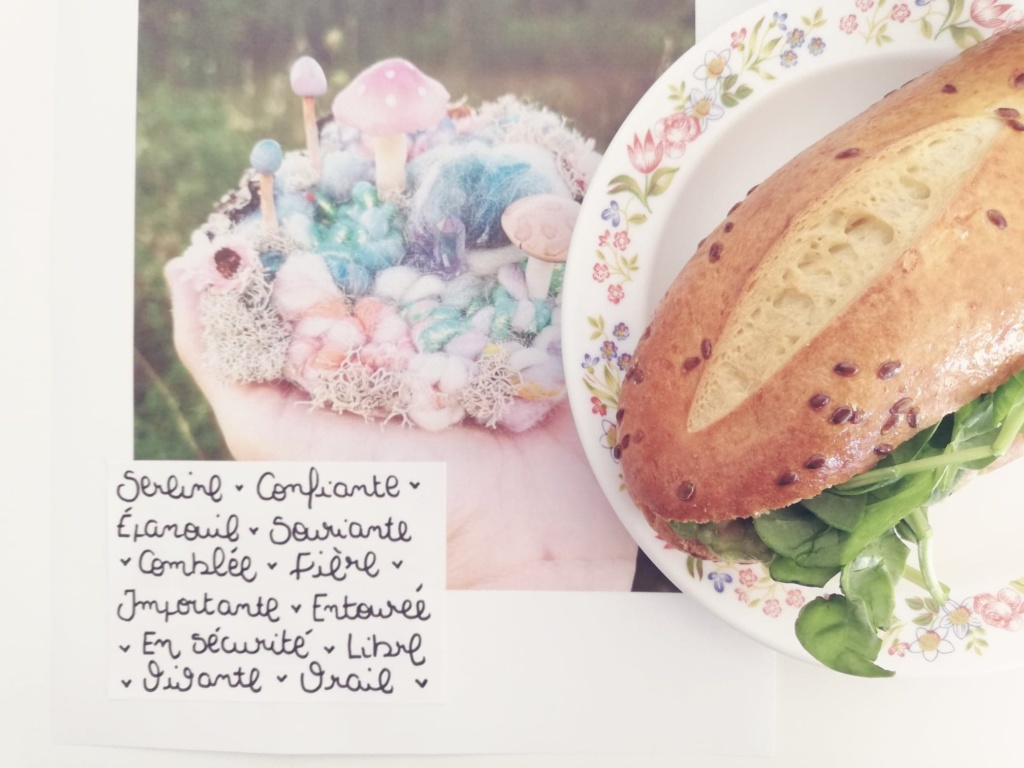 Sereine ♥ Confiante ♥
Épanouie ♥ Souriante
♥ Comblée ♥ Fière ♥
Importante ♥ Entourée
♥ En sécurité ♥ Libre
♥ Vivante ♥ Vraie ♥